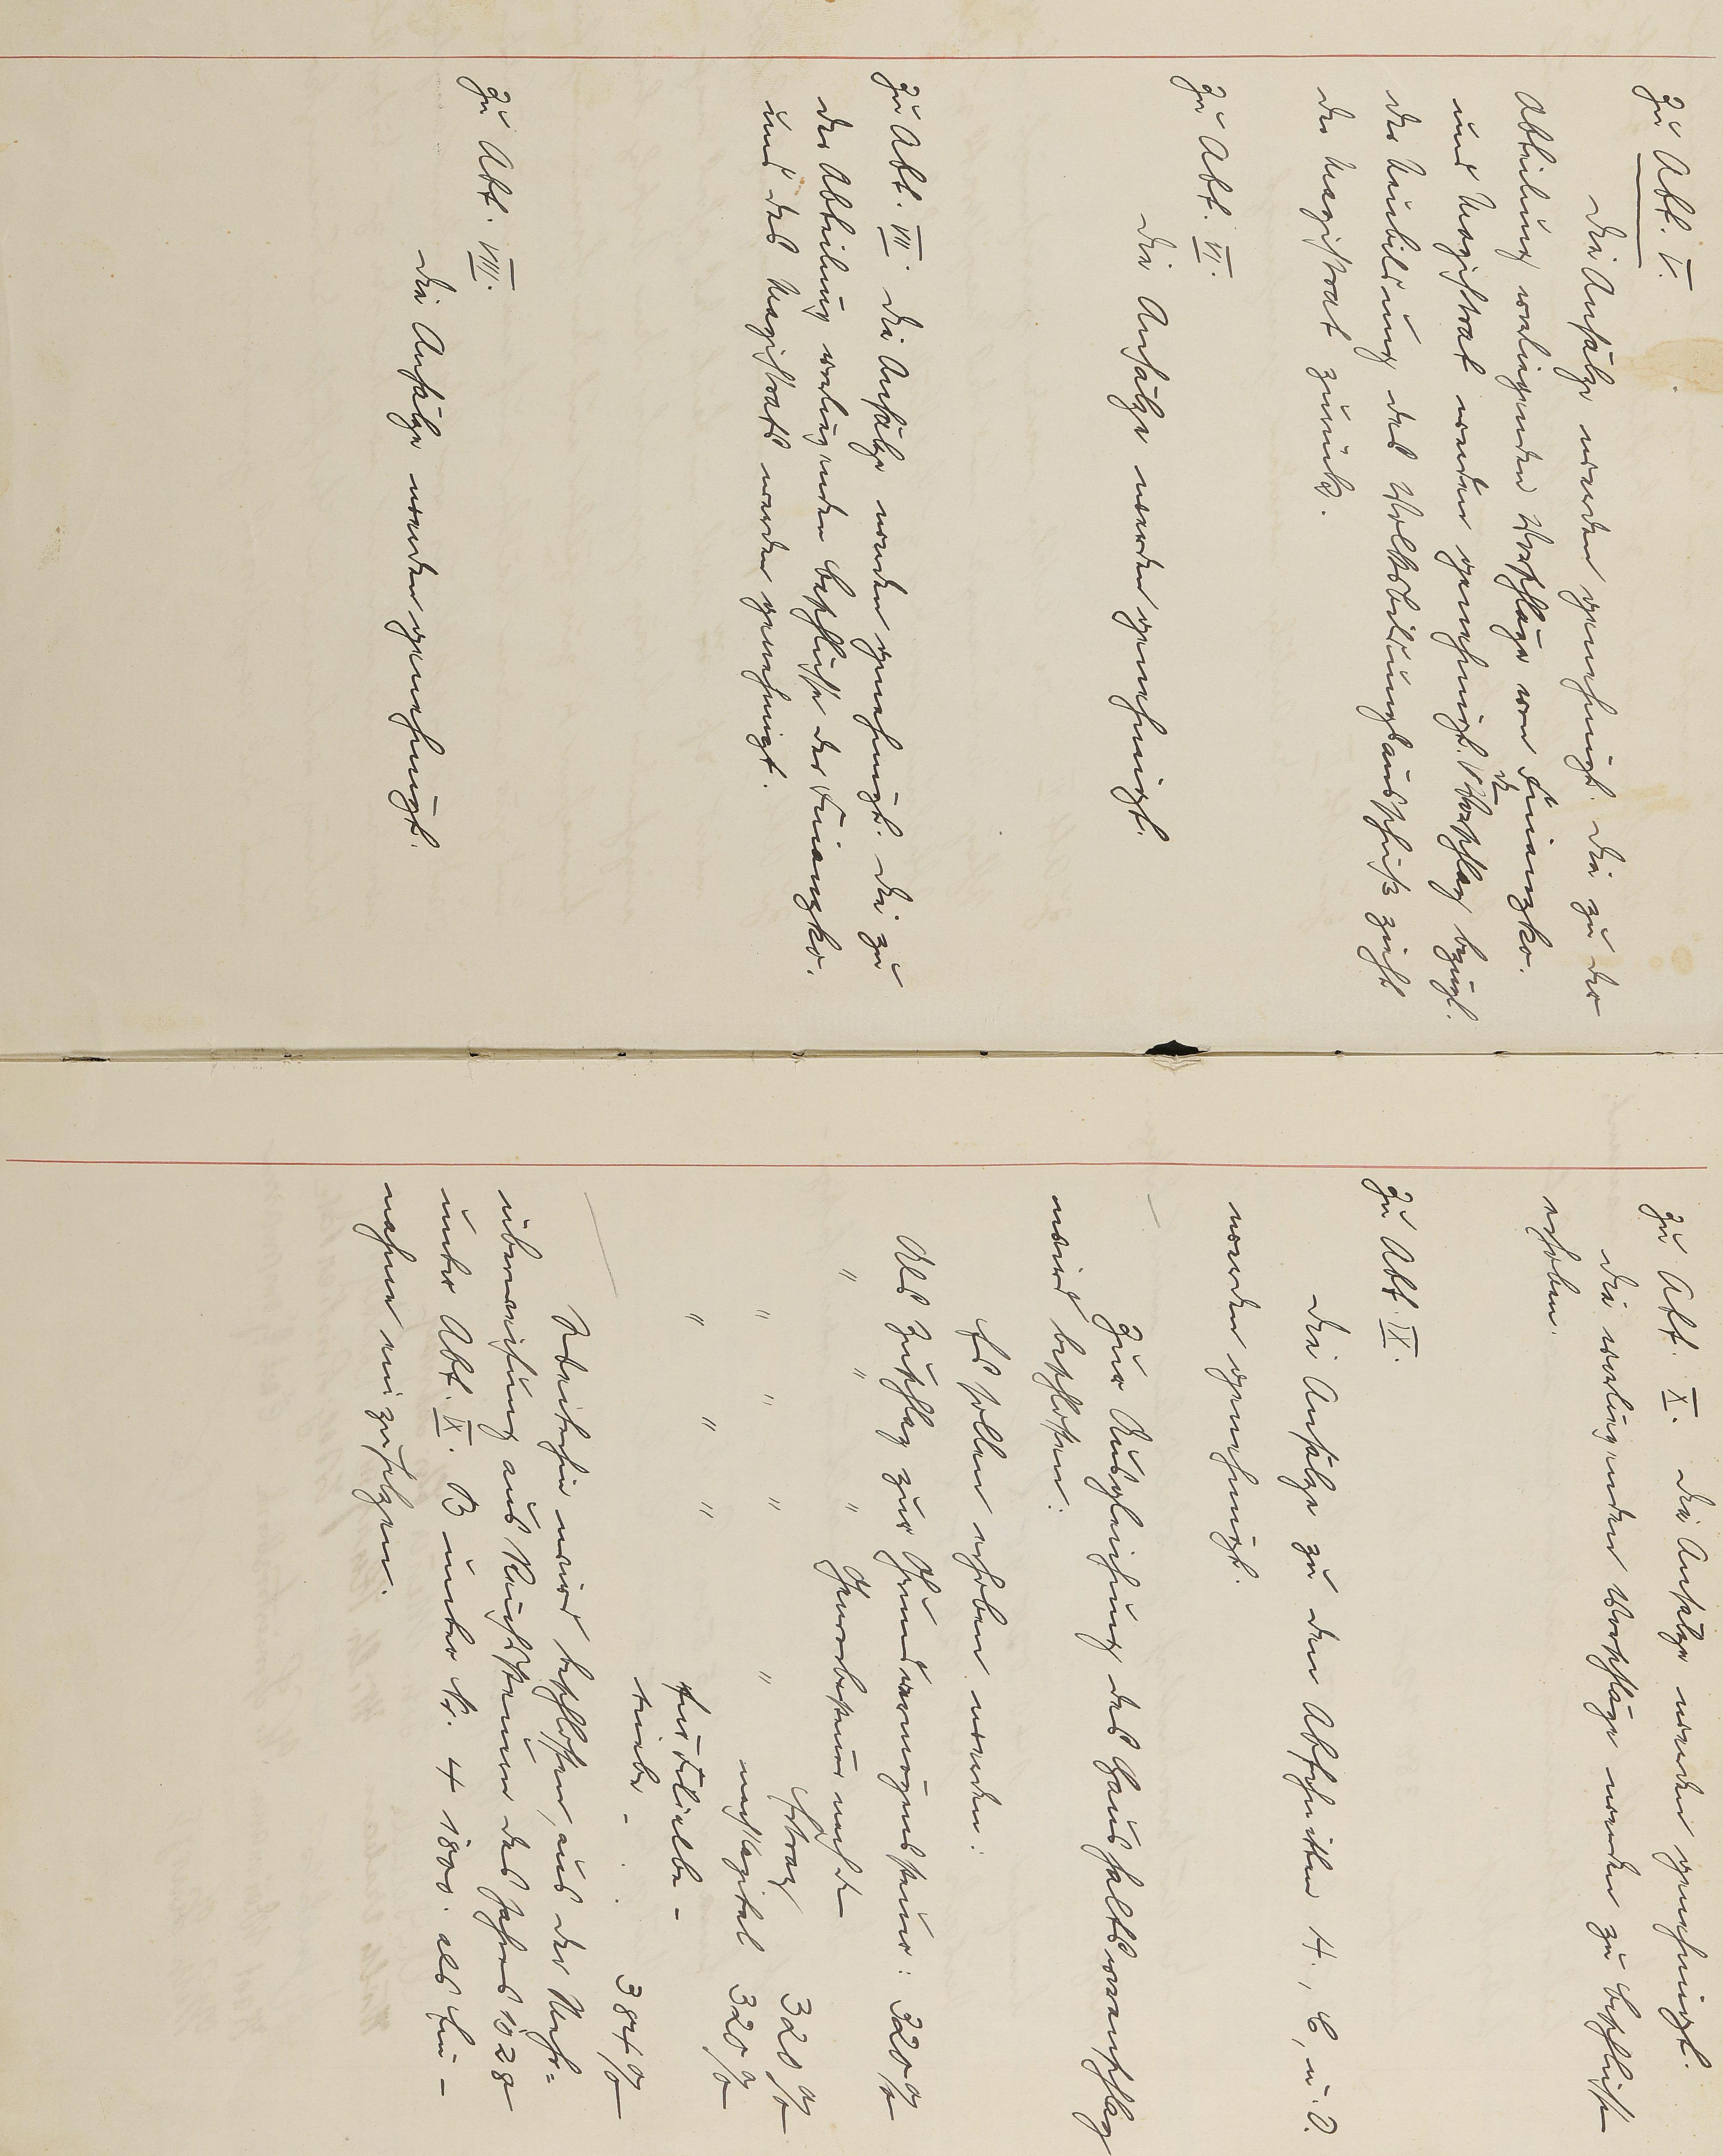 Zu Abt. V.
Die Ansätze werden genehmigt. Die zu der
Abteilung vorliegenden Vorschläge von Finanzko.
und Magistrat werden genehmigt. Den Vorschlag bezügl.
der Neubildung des Volksbildungsausschuß zieht
der Magistrat zurück.
Zu Abt. VI.
Die Ansätze werden genehmigt.
Zu Abt. VII. Die Ansätze werden genehmigt. Die zu
der Abteilung vorliegenden Beschlüsse der Finanzko.
und des Magistrats werden genehmigt.
Zu Abt. VIII.
Die Ansätze werden genehmigt.
Zu Abt. X. Die Ansätze werden genehmigt.
Die vorliegenden Vorschläge werden zu Beschlüssen
erhoben.
Zu Abt. IX.
Die Ansätze zu den Abschnitten A., C, u. D.
werden genehmigt.
Zur Ausgleichung des Haushaltsvoranschlag
wird beschlossen:
Es sollen erhoben werden:
Als Zuschlag zur Grundvermögenssteuer: 320 %
" " " Gewerbesteuer nach d.
Ertrag 320 %
" " " " nach Kapital 320 %
" " " für Filialbe-
triebe - . . 384 %
Weiterhin wird beschlossen, aus der Mehr-
überweisung aus Reichssteuern des Jahres 1928
unter Abt. IX. B unter Nr. 4 1800. als Ein-
nahmen einzusetzen.